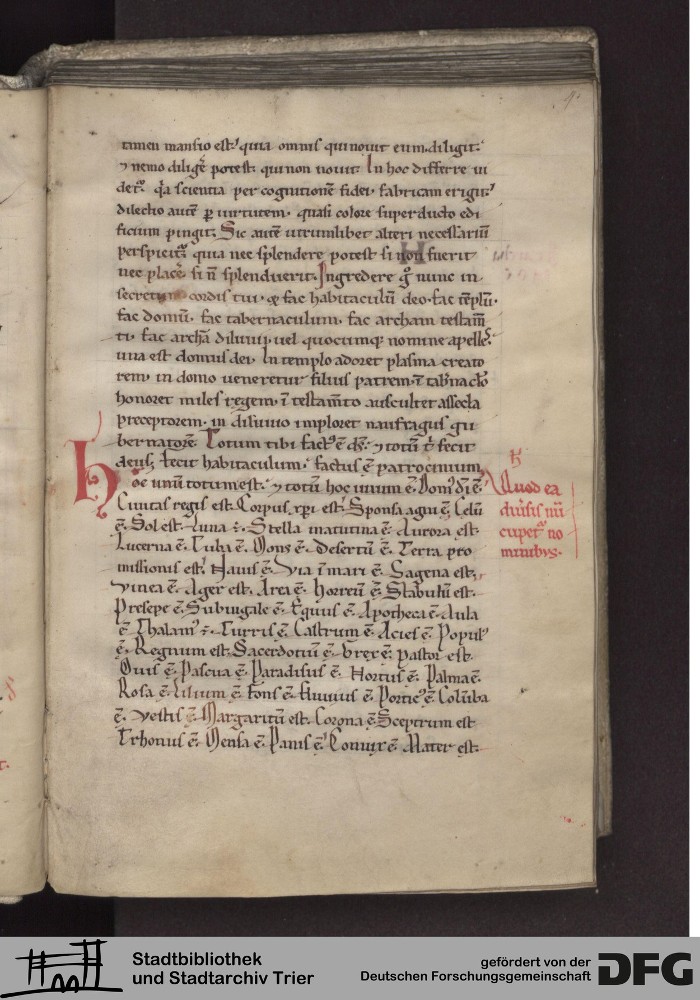 timen mansio est. quia omnis qui nouit eum. diligit.
⁊ nemo diligẽ potest. qui non nouit. In hoc differre ui
det᷒. q̃a scientia per cognitionẽ fidei fabricam erigit.
dilectio autẽ ꝑ uirtutem. quasi colore superducto edi
ficium pingit. Sic autẽ utrumlibet alteri necessariũ
perspicit᷒. quia nec splendere potest si non fuerit
nec placẽ si ñ splenduerit. Ingredere g̊ nunc in
secretum cordis tui. ⁊ fac habitaculũ deo. fac tẽplũ.
fac domũ. fac tabernaculum. fac archam testam̃
ti. fac archã diluuii. uel quocumq; nomine apelles.
una est domus dei. In templo adoret plasma creato
rem. in domo ueneretur filius patrem. ĩ tab̃nac̃lo
honoret miles regem. ĩ testam̃to auscultet assecla
preceptorem. in diluuio imploret naufragus gu
bernatorẽ. Totum tibi fact᷒ ẽ ds̃. ⁊ totũ t̃ fecit
deus. fecit habitaculum. factus ẽ patrocinium.
Hoc unũ totum est. ⁊ totũ hoc unum ẽ. Dom᷒ dĩ ẽ.
Ciuitas regis est. Corpus xp̃i est. Sponsa agni ẽ. Celũ
ẽ. Sol est. Luna ẽ. Stella matutina ẽ. Aurora est.
Lucerna ẽ. Tuba ẽ. Mons ẽ. Desertũ ẽ. Terra pro
missionis est. Nauis ẽ. Via ĩ mari ẽ. Sagena est.
Vinea ẽ. Ager est. Area ẽ. Horreũ ẽ. Stabulũ est.
Presepe ẽ. Subiugale ẽ. Equus ẽ. Apotheca ẽ. Aula
ẽ. Thalam᷒ ẽ. Turris ẽ. Castrum ẽ. Acies ẽ. Popul᷒
ẽ. Regnum est. Sacerdotiũ ẽ. Vxor ẽ. Pastor est.
Ouis ẽ. Pascua ẽ. Paradisus ẽ. Hortus ẽ. Palma ẽ.
Rosa ẽ. Lilium ẽ. Fons ẽ. Fluuius ẽ. Portic᷒ ẽ. Colũba
ẽ. Vestis ẽ. Margaritũ est. Corona ẽ. Sceptrum est
Trhonus ẽ. Mensa ẽ. Panis ẽ. Coniux ẽ. Mater est.
Quod ea
diũsis nũ
cupet᷒ no
minibus.
Stadtbibliothek
und Stadtarchiv Trier
gefördert von der
Deutschen Forschungsgemeinschaft
DFG